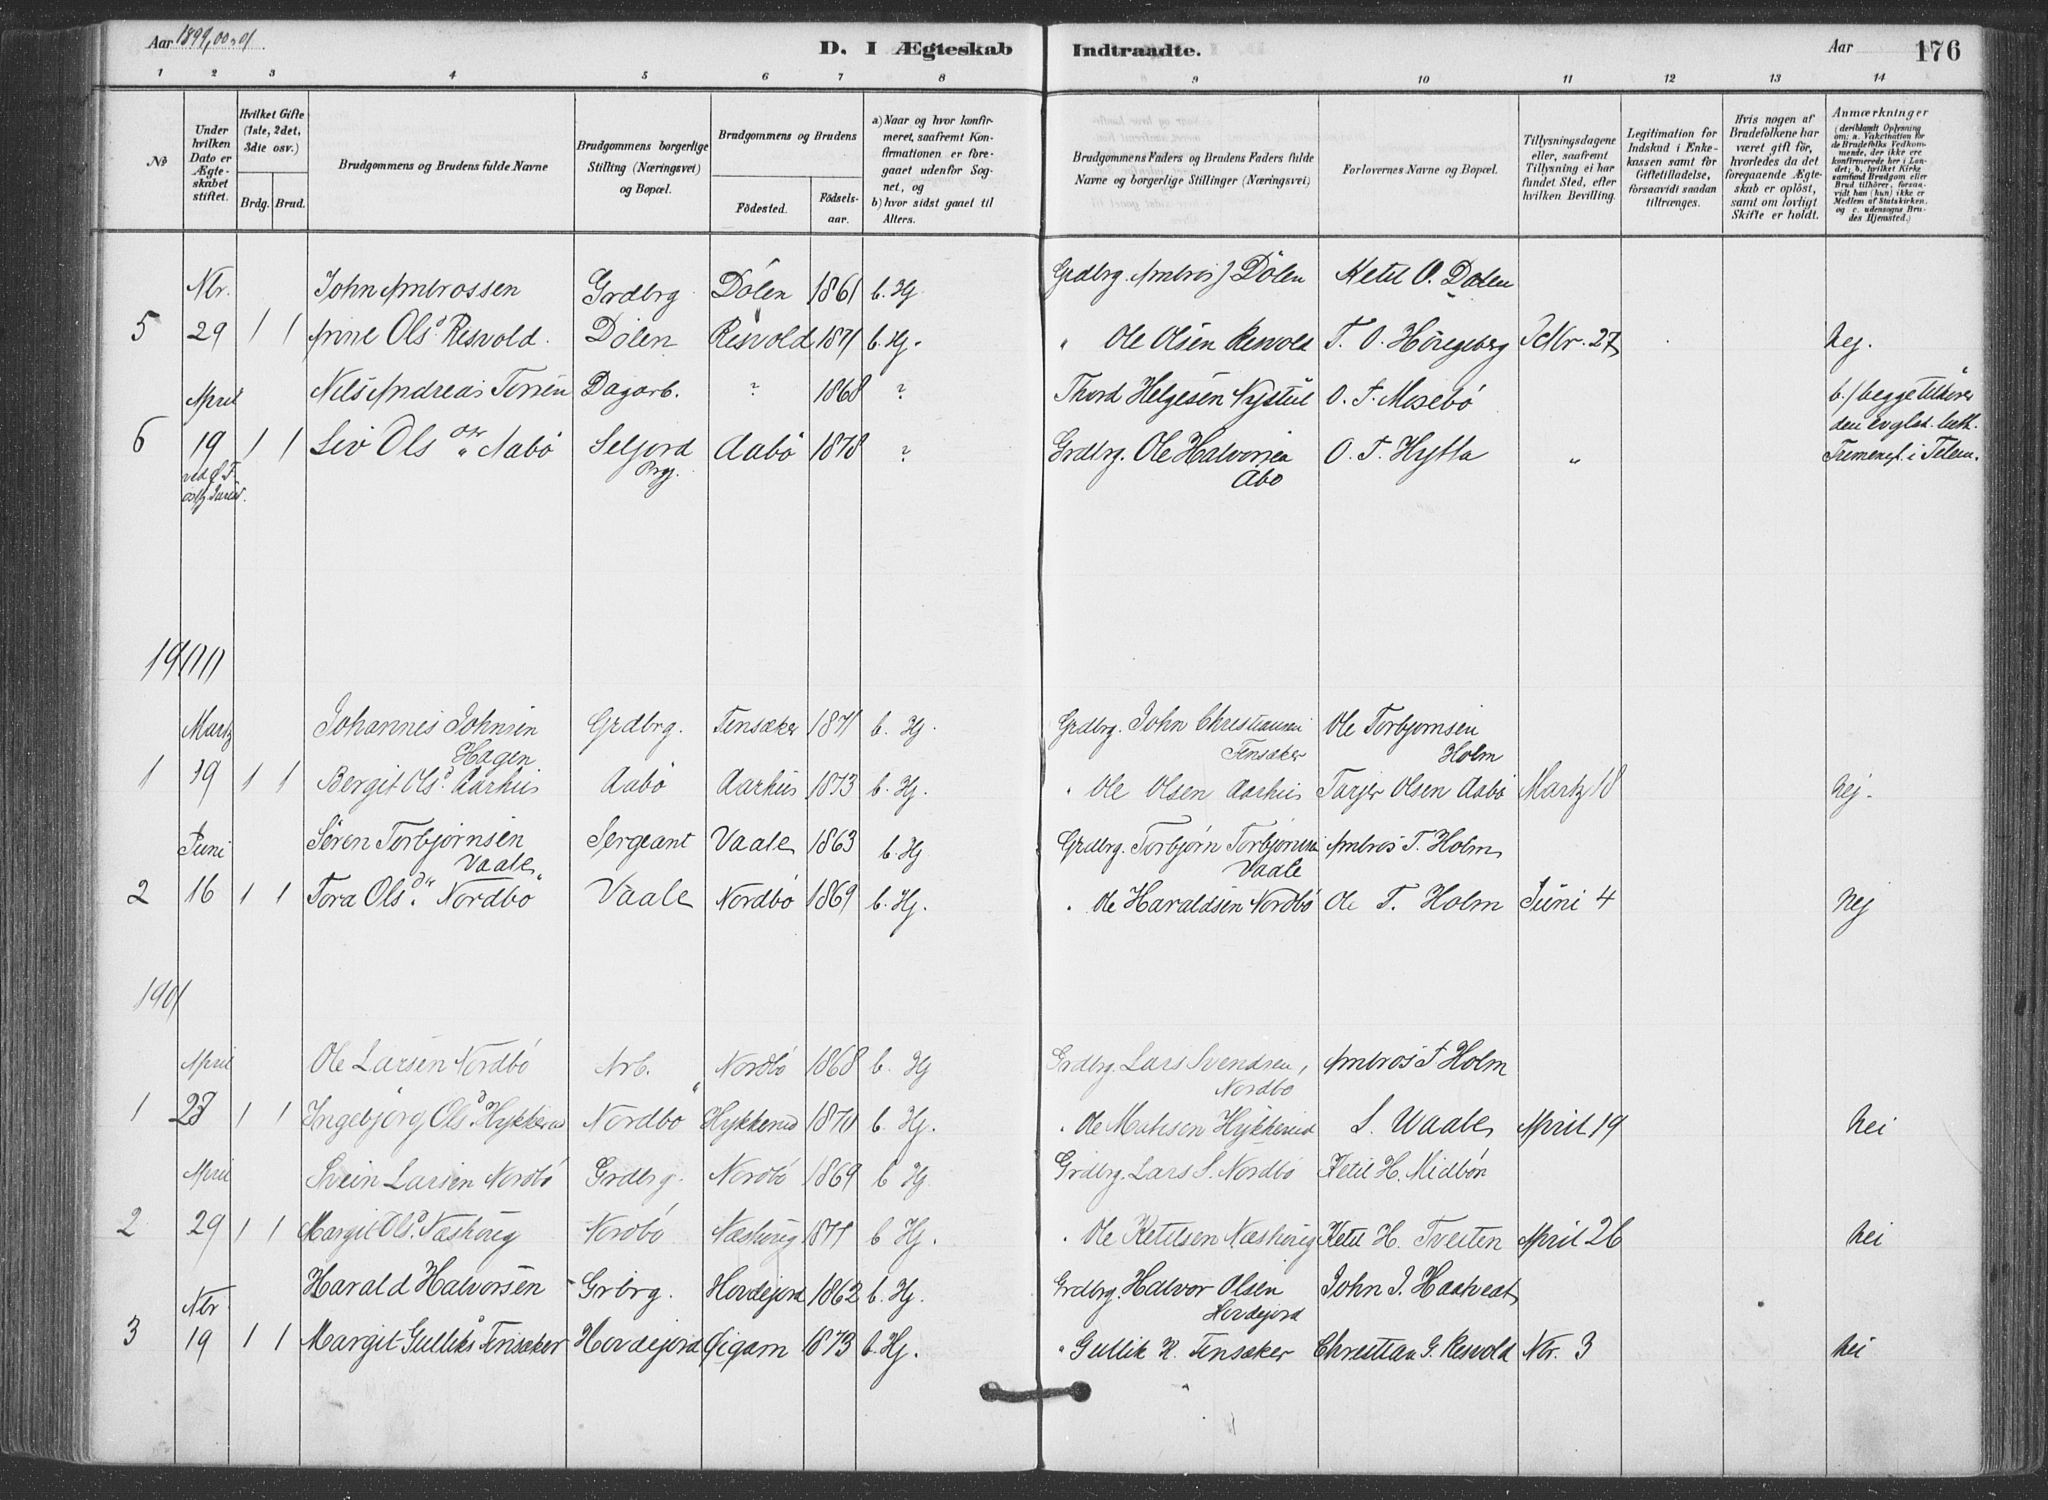 Aar 1899,00-01. D. I Ægteskab Indtraadte. Aar 176
1 2 3 4 5 6 7 8 9 10 11 12 13 14
No
Under hvilken Dato er Ægteskabet stiftet.
Hvilket Gifte (1ste, 2det, 3die osv.)
Brdg. Brud.
Brudgommens og Brudens fulde Navne
Brudgommens borgerlige Stilling (Næringsvei) og Bopæl.
Brudgommens og Brudens
Fødested. Fødselsaar.
a) Naar og hvor konfirmeret, saafremt Konfirmationen er foregaaet udenfor Sognet, og
b) hvor sidst gaaet til Alters.
Brudgommens Faders og Brudens Faders fulde Navne og borgerlige Stillinger (Næringsvei)
Forlovernes Navne og Bopæl.
Tillysningsdagene eller, saafremt Tillysning ei har fundet Sted, efter hvilken Bevilling.
Legitimation for Indskud i Enkekassen samt for Giftetilladelse, forsaavidt saadan tiltrænges.
Hvis nogen af Brudefolkene har været gift før, hvorledes da det foregaaende Ægteskab er opløst, samt om lovligt Skifte er holdt.
Anmærkninger
(deriblandt Oplysning om: a. Vakcination for de Brudefolks Vedkommende, der ikke ere konfirmerede her i Landet; b. hvilket Kirkesamfund Brudgom eller Brud tilhører, forsaavidt han (hun) ikke er Medlem af Statskirken, og c. udensogns Brudes Hjemsted.)
Nbr. John Ambrossen Grdbrg Dølen 1861 b. Hj Grdbrg. Ambros J Dølen Ketil O. Dølen
5 29 1 1 Anne Olsd Resvold. Dølen Resvold 1871 b. Hj. " Ole Olsen Resvold T. O. Høregberg Nbr. 27 nej.
April Nils Andreas Dagarb. ? 1868 ? Thord Helgesen Nystul O. T. Mosebø b./begge tilhører
6 19 1 1 Liv Olsdtr Aabø Seljord Aabø 1878 ? Grdbrg. Ole Halvorsen O. T. Hytta " den evgl. luth.
Prgj. Abø Frimengh. i Telem.
1900
Martz Johannes Johnsen Grdbrg. Tensaker 1871 b. Hj. Grdbrg. John Christiansen Ole Torbjørnsen
Hagen Tensaker Holm
1 19 1 1 Bergit Olsd. Aarhus Aabø Aarhus 1873 b. Hj. " Ole Olsen Aarhus Tarjer Olsen Aabø Martz 18 nej.
Juni Søren Torbjørnsen Sergeant Vaale 1863 b. Hj Grdbrg. Torbjørn Torbjørnsen Ambros T. Holm
Vaale Vaale
2 16 1 1 Tora Olsdr. Nordbø Vaale Nordbø 1869 b. Hj. " Ole Haraldsen Nordbø Ole T. Holm Juni 4 nej
1901
April Ole Larsen Nordbø Arb. Nordbø 1868 b. Hj Grdbrg. Lars Svendsen, Ambros T Holm
Nordbø
1 23 1 1 Ingebjørg Olsd. Hykkerud Nordbø Hykkerud 1870 b. Hj. " Ole Hykkerud S. Vaale April 19 nei
April Svein Larsen Nordbø Grdbrg. Nordbø 1869 b Hj. Grdbrg. Lars S. Nordbø Ketil H. Midbøn
2 29 1 1 Margit Olsd. Næshoug Nordbø Næshoug 1871 b Hj. " Ole Ketilsen Næshoug Ketil H. Tveiten April 26 nei
Nbr. Harald Halvorsen Grbrg. Hovdejord 1862 b. Hj. Grdbrg. Halvor Olsen John J. Haatveat
Hovdejord
3 19 1 1 Margit Gulliks Tensaker Hovdejord 1873 b. Hj. " Gullik H. Tensaker Christian G. Resvold Nbr. 3 nei